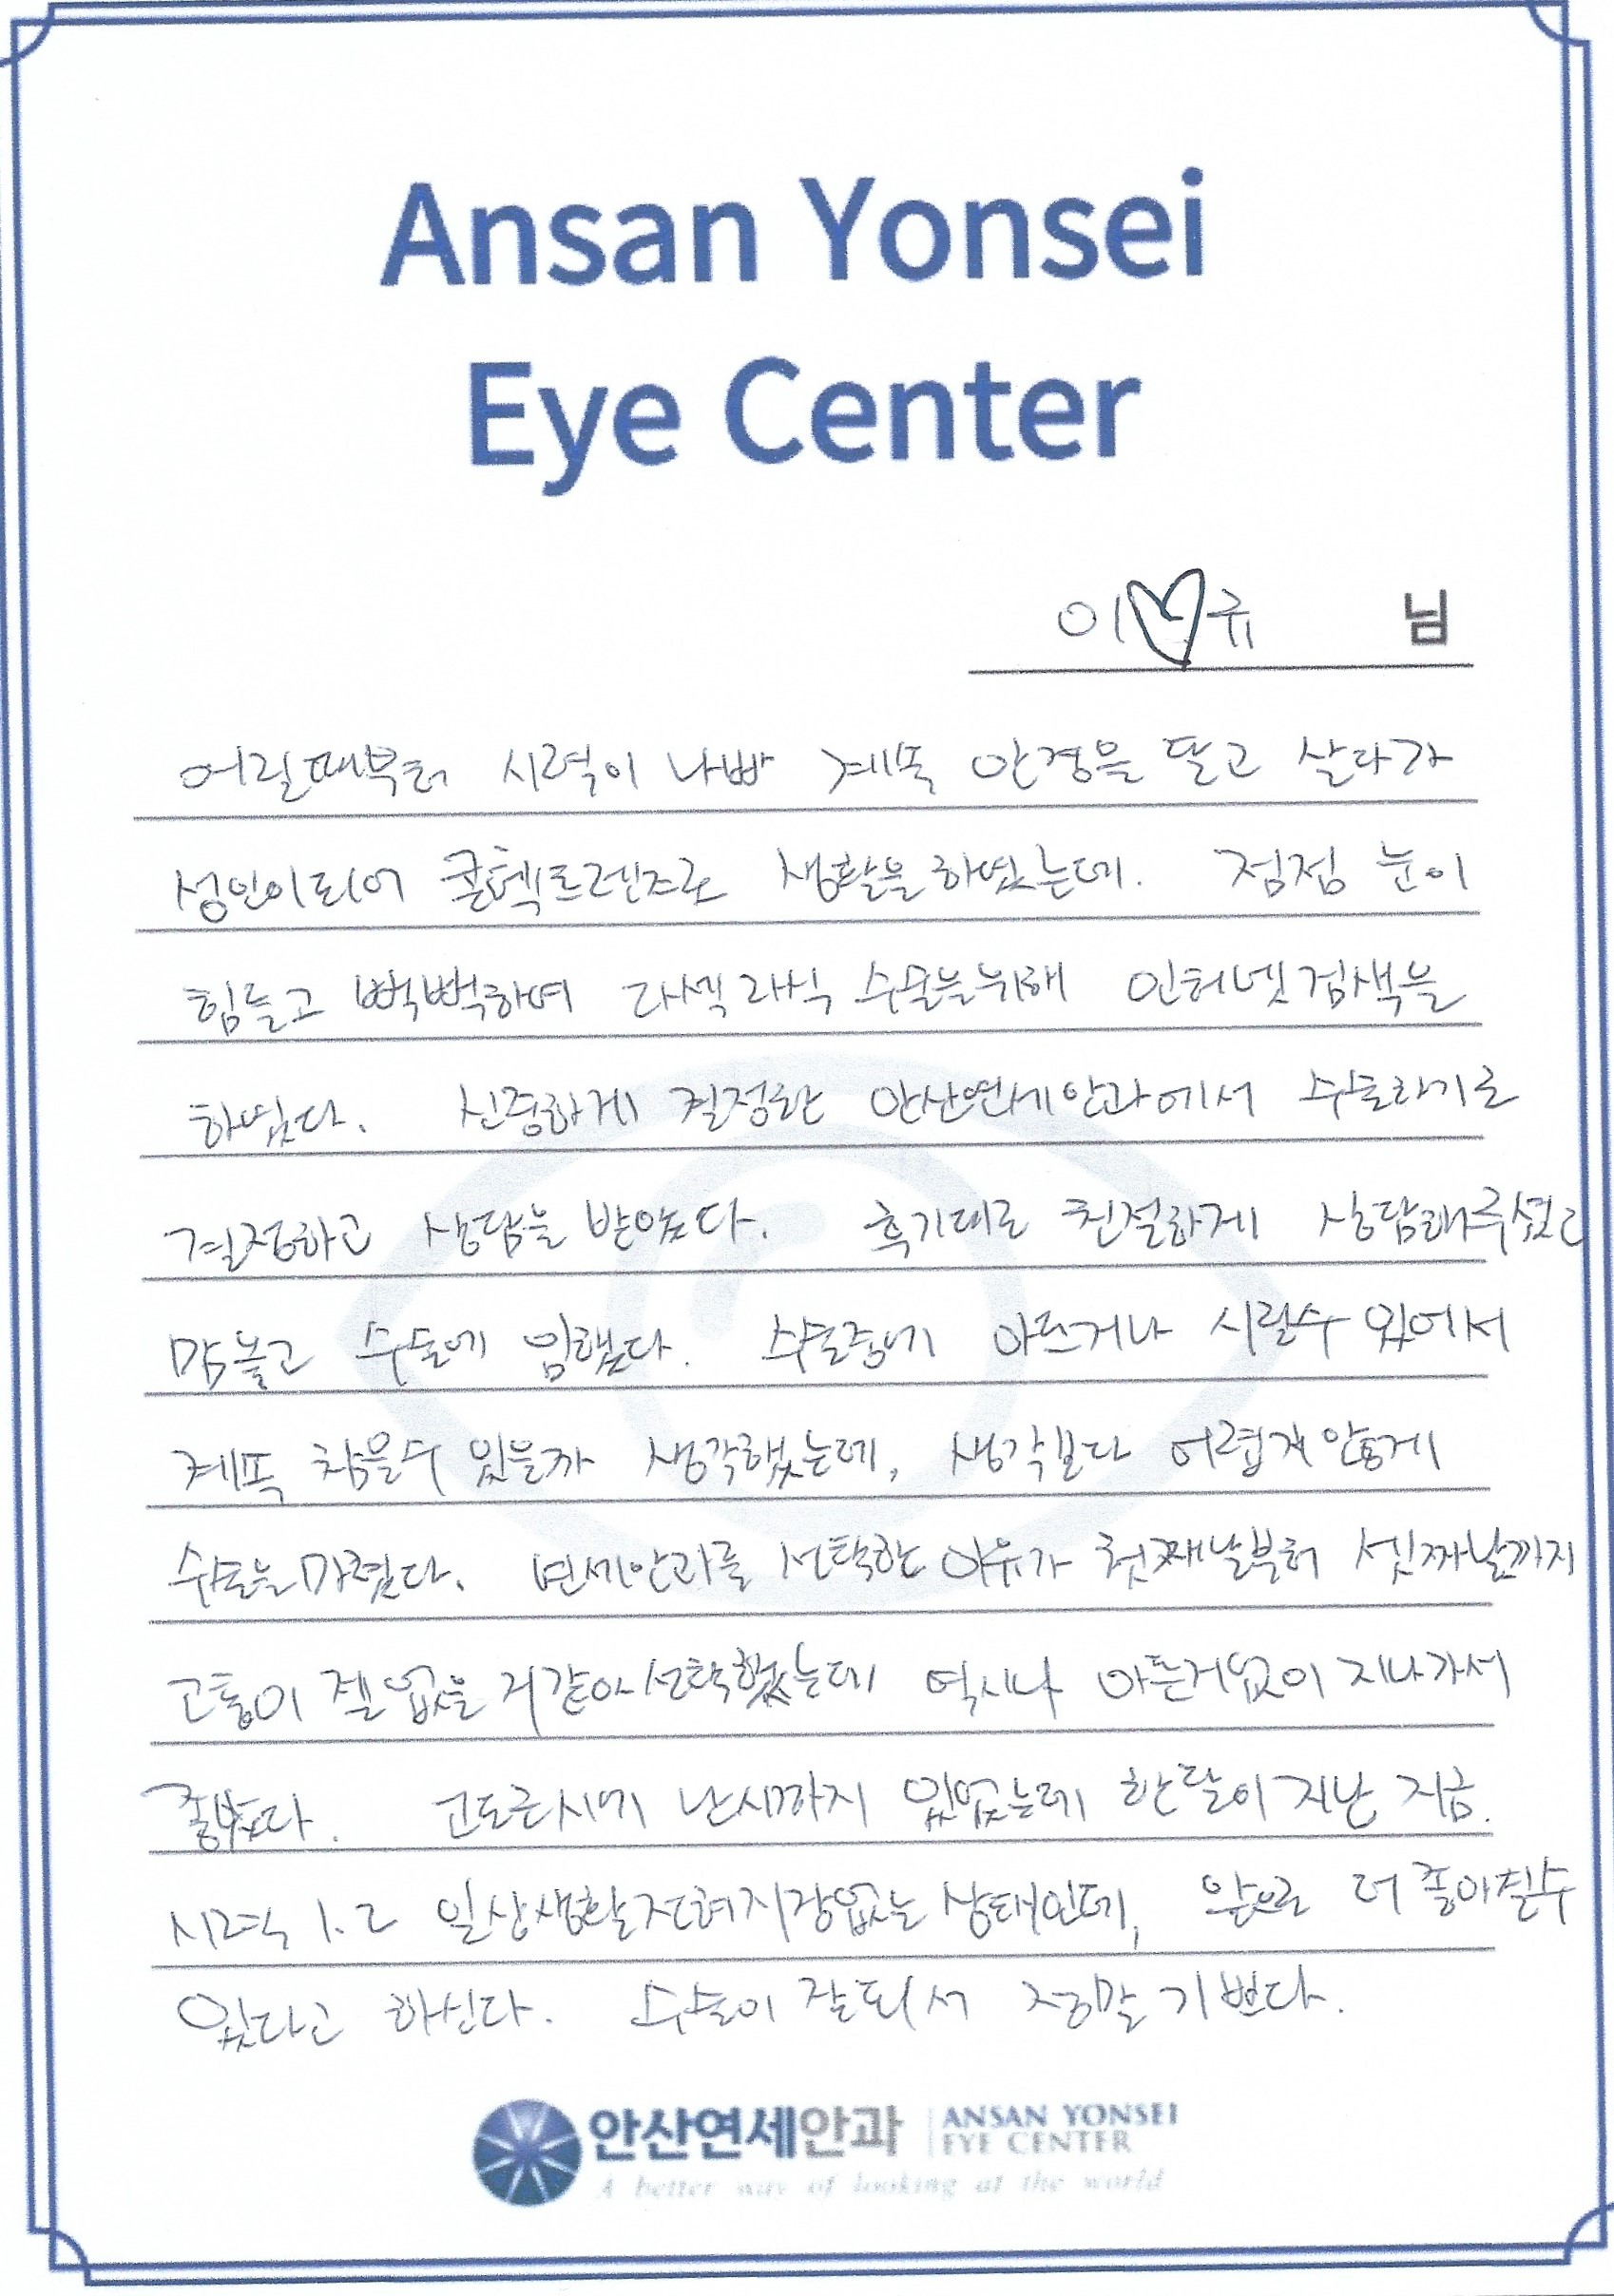 Ansan Yonsei
Eye Center
이♡규 님
어릴때부터 시력이 나빠 계속 안경을 달고 살다가
성인이되어 콘텍트렌즈로 생활을하였는데. 점점 눈이
힘들고 뻑뻑하여 라섹 라식 수술을위해 인터넷검색을
하였다. 신중하게 결정한 안산연세안과에서 수술하기로
결정하고 상담을 받았다. 후기대로 친절하게 상담해주셨고
맘놓고 수술에 임했다. 수술중에 아프거나 시릴수 있어서
계속 참을수 있을까 생각했는데, 생각보다 어렵지않게
수술을마쳤다. 연세안과를 선택한 이유가 첫째날부터 셋째날까지
고통이 젤없을 거같아선택했는데 역시나 아픈거없이 지나가서
좋았다. 고도근시에 난시까지 있었는데 한달이지난 지금.
시력 1.2 일상생활전혀지장없는 상태인데, 앞으로 더 좋아질수
있다고 하신다. 수술이 잘되서 정말 기쁘다.
안산연세안과 ANSAN YONSEI
EYE CENTER
A better way of looking at the world